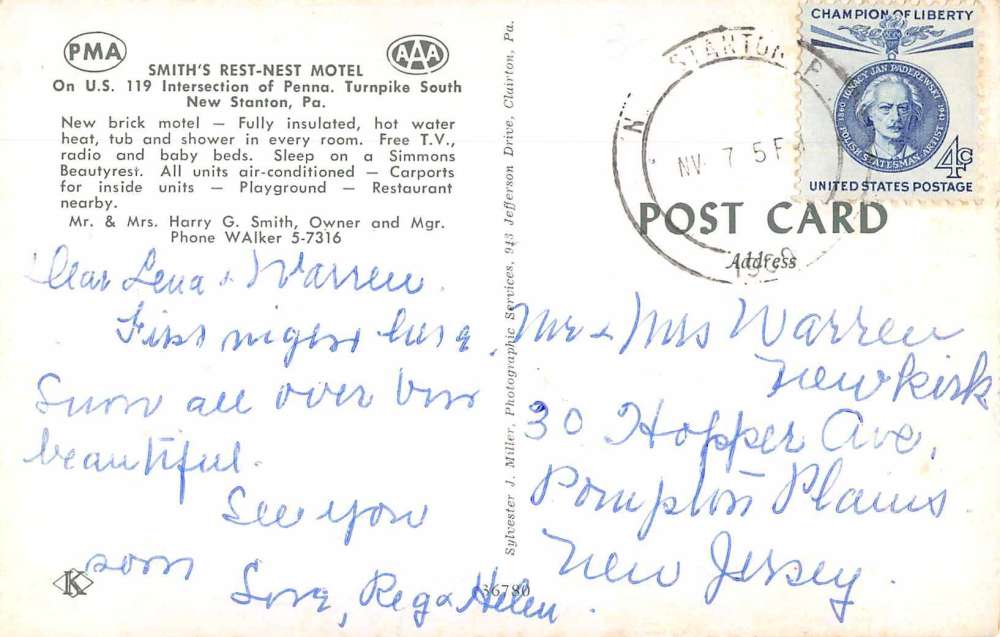 PMA
AAA
SMITH'S REST-NEST MOTEL
On U.S. 119 Intersection of Penna. Turnpike South
New Stanton, Pa.
New brick motel — Fully insulated, hot water
heat, tub and shower in every room. Free T.V.,
radio and baby beds. Sleep on a Simmons
Beautyrest. All units air-conditioned — Carports
for inside units — Playground — Restaurant
nearby.
Mr. & Mrs. Harry G. Smith, Owner and Mgr.
Phone WAlker 5-7316
Dear Lena & Warren.
First night here.
Snow all over
beautiful.
See you
soon
Love, Reg & Helen.
K
36780
Sylvester J. Miller, Photographic Services, 943 Jefferson Drive, Clairton, Pa.
STANTON P
NV 7 5 P
CHAMPION OF LIBERTY
IGNACY JAN PADEREWSKI
1860
1941
POLISH STATESMAN ARTIST
4¢
UNITED STATES POSTAGE
POST CARD
Address
Mr & Mrs Warren
Newkirk
30 Hopper Ave,
Pompton Plains
New Jersey.